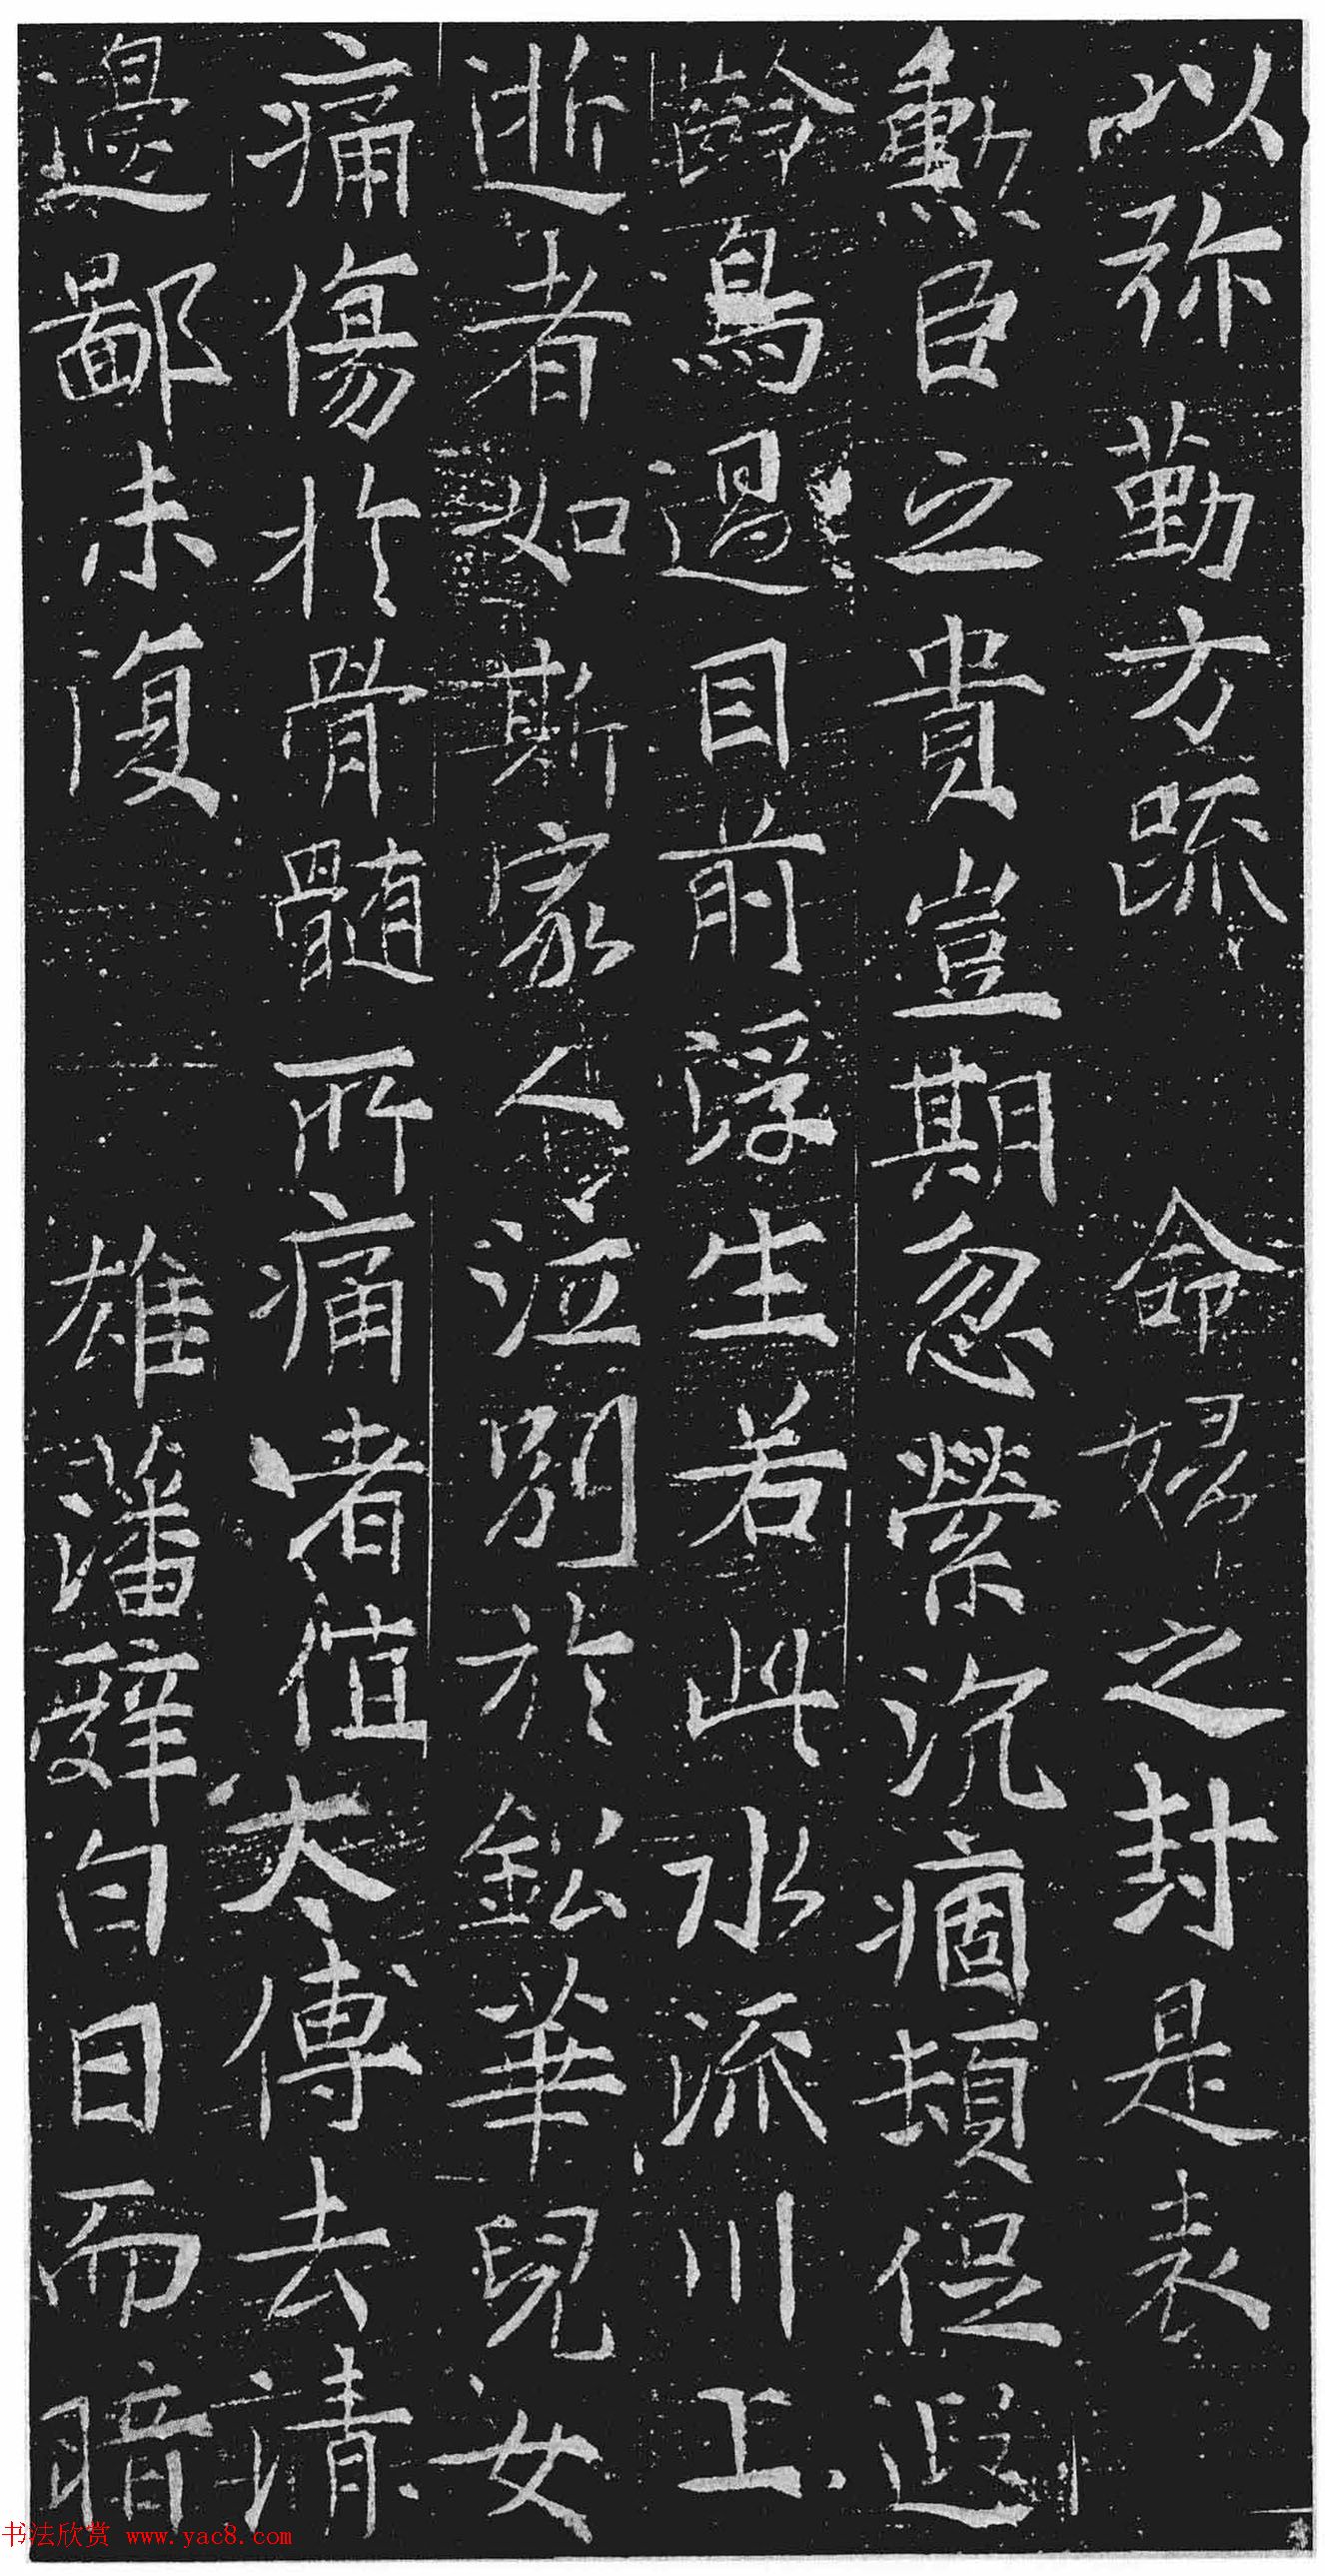 以弥勤方疏 命婦之封是表
勲臣之貴豈期忽縈沉痼頓促遐
齡鳥過目前浮生若此水流川上
逝者如斯家人泣別於鈆華兒女
痛傷於骨髓所痛者值太傅去清
邉鄙未復 雄藩辭白日而暗
书法欣赏 www.yac8.com